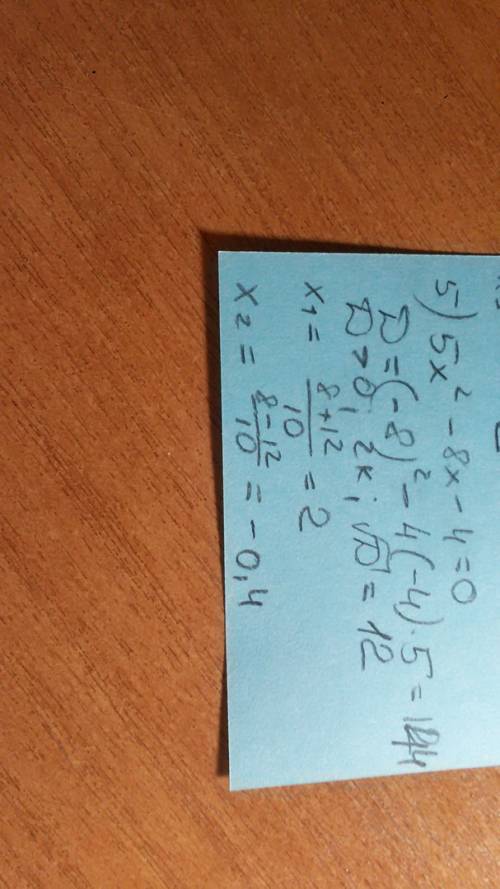 5) 5x² - 8x - 4 = 0
D = (-8)² - 4(-4)·5 = 144
D > 0, 2к; √D = 12
x₁ = (8+12)/10 = 2
x₂ = (8-12)/10 = -0,4